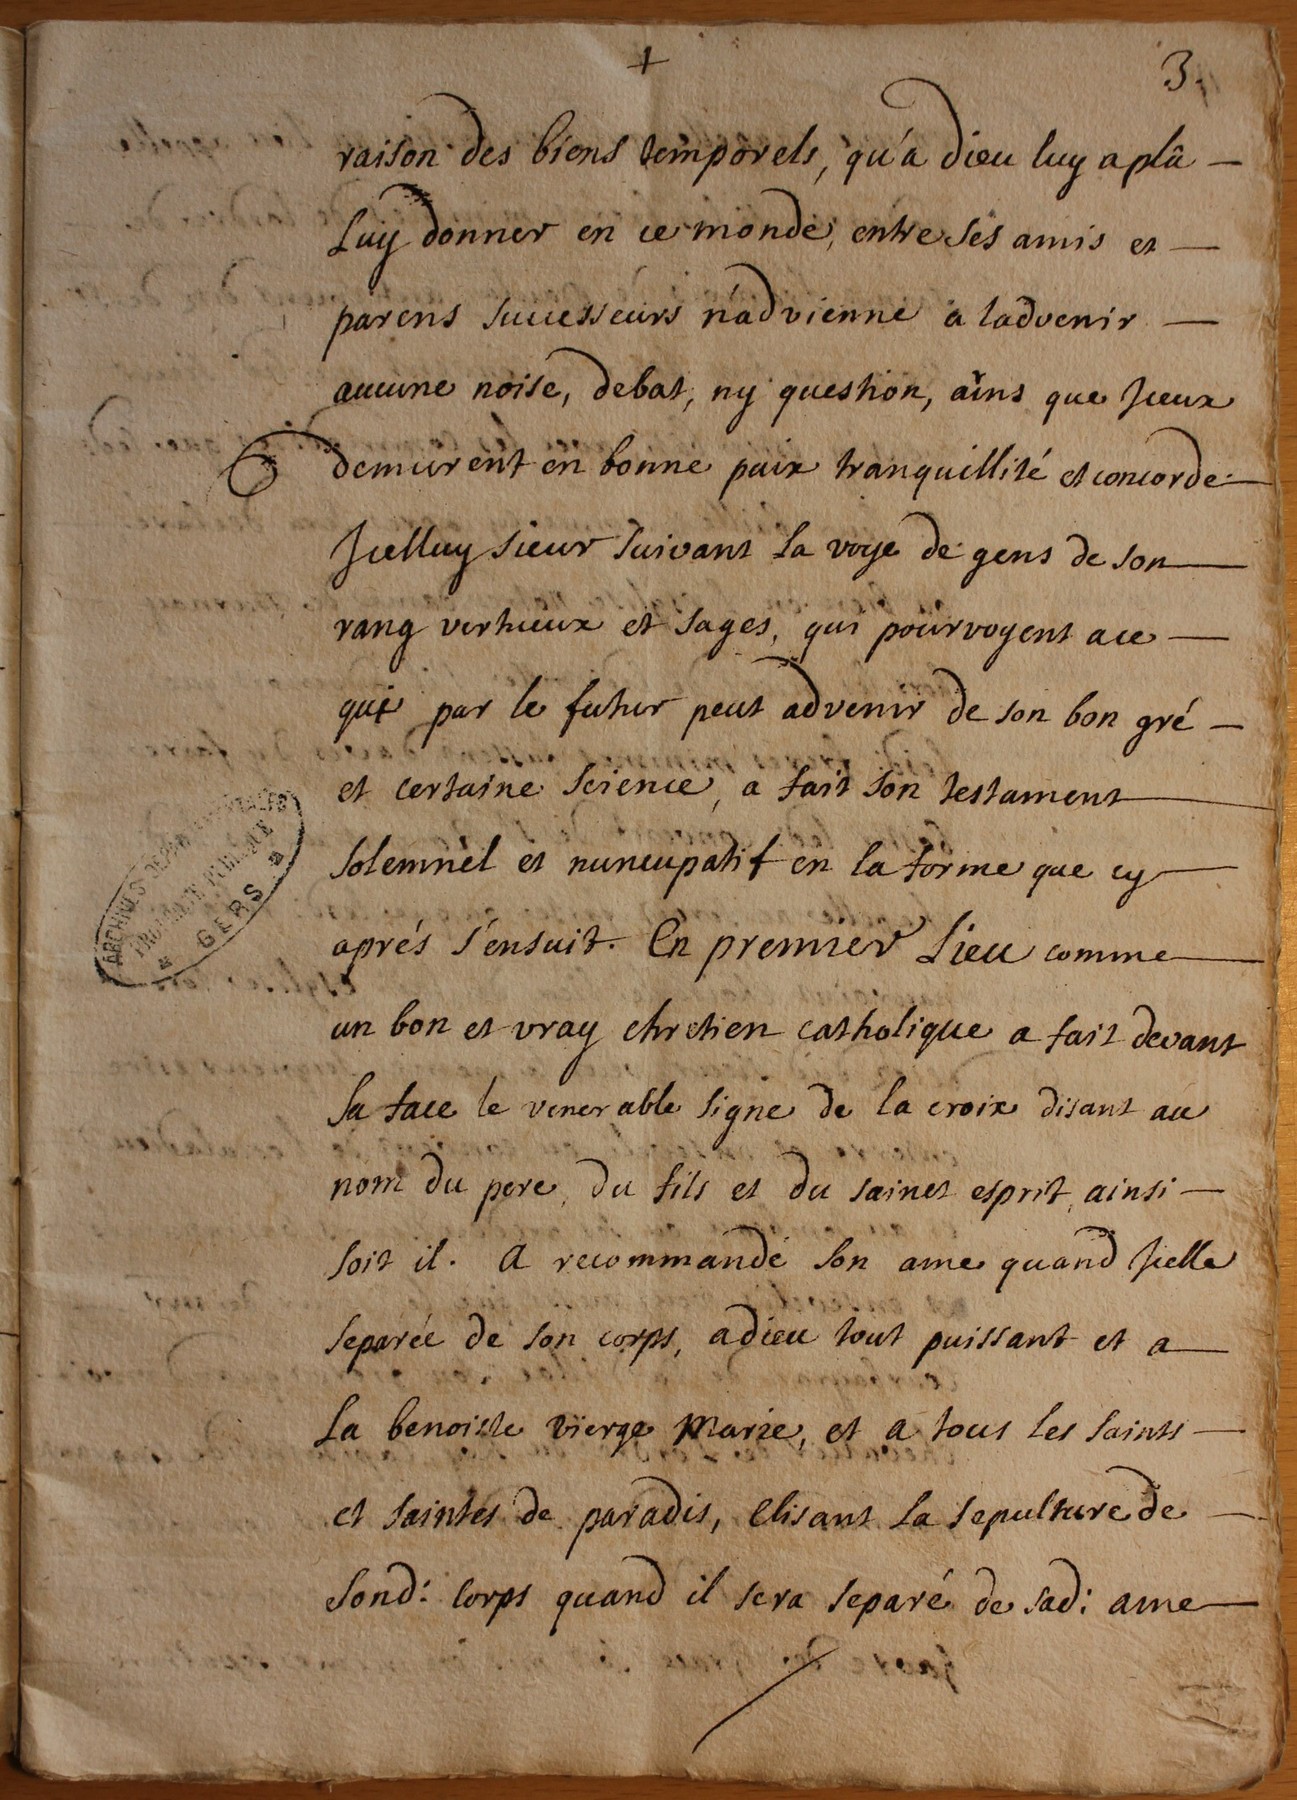 +
3.
raison des biens temporels, qu'a dieu luy a plû -
Luy donner en ce monde, entre ses amis et -
parens successeurs n'advienne a ladvenir -
aucune noise, debat, ny question, ains que Jceux
demurent en bonne paix tranquillité et concorde -
Jcelluy sieur suivant la voye de gens de son -
rang vertueux et sages, qui pourvoyent a ce -
qui par le futur peut advenir de son bon gré -
et certaine science, a fait son testament -
solemnel et nuncupatif en la forme que cy -
aprés s'ensuit. En premier Lieu comme -
un bon et vray chretien catholique a fait devant
sa face le venerable signe de la croix disant au
nom du pere, du fils et du sainct esprit, ainsi -
soit il. A recommandé son ame quand Jcelle
separée de son corps, a dieu tout puissant et a -
La benoiste vierge Marie, et a tous les saints -
et saintes de paradis, Elisant la sepulture de -
Sond: corps quand il sera separé de sad: ame -
ARCHIVES
GERS